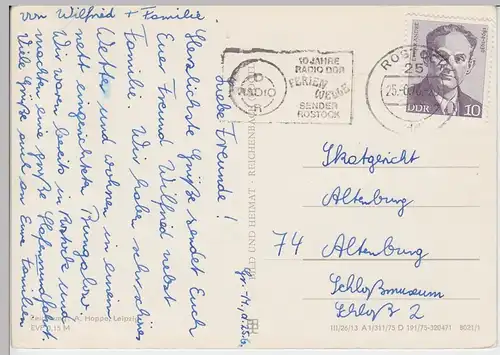 von Wilfried + Familie.
Liebe Freunde!
Gr.-H., d. 25.6.
Herzlichste Grüße sendet Euch
Euer Freund Wilfried nebst
Familie. Wir haben sehr schönes
Wetter und wohnen in einem
nett eingerichteten Bungalow.
Wir waren bereits in Rostock und
machten eine große Hafenrundfahrt.
Viele Grüße auch an Eure Familien
A. Hoppe, Leipzig
EVP 0,15 M
BILD UND HEIMAT REICHENBACH
RADIO
DDR
10 JAHRE
RADIO DDR
FERIEN
WELLE
SENDER
ROSTOCK
ROSTOCK
25
DDR 10
Skatgericht
Altenburg
74 Altenburg
Schloßmuseum
Schloß 2
III/26/13 A 1/311/75 D 191/75-320471 8021/1